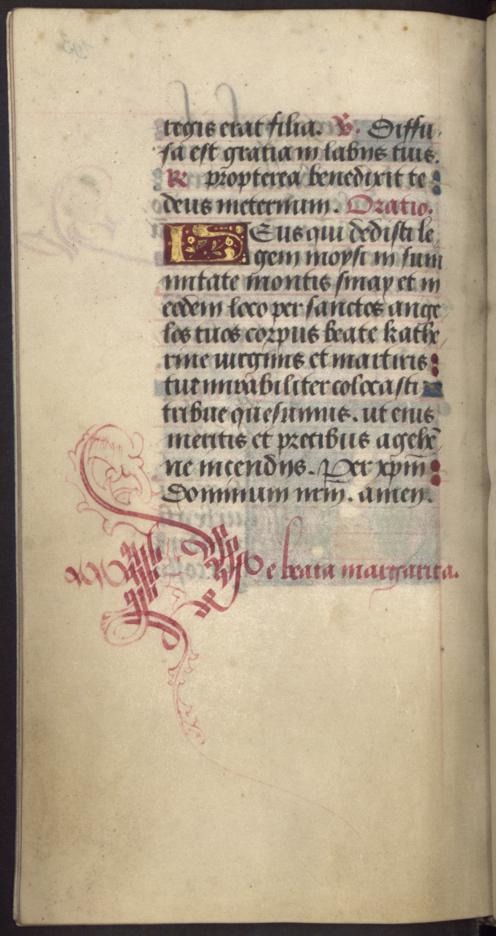 regis erat filia. V. Diffu
sa est gratia in labijs tuis.
R propterea benedixit te
deus ineternum. Oratio.
Deus qui dedisti le
gem moysi in sum
mitate montis sinay et in
eodem loco per sanctos ange
los tuos corpus beate kathe
rine virginis et martiris
tue mirabiliter colocasti
tribue quesumus. ut eius
meritis et precibus a gehẽ
ne incendijs. Per xp̃m
Dominum nr̃m. amen.
De beata margarita.